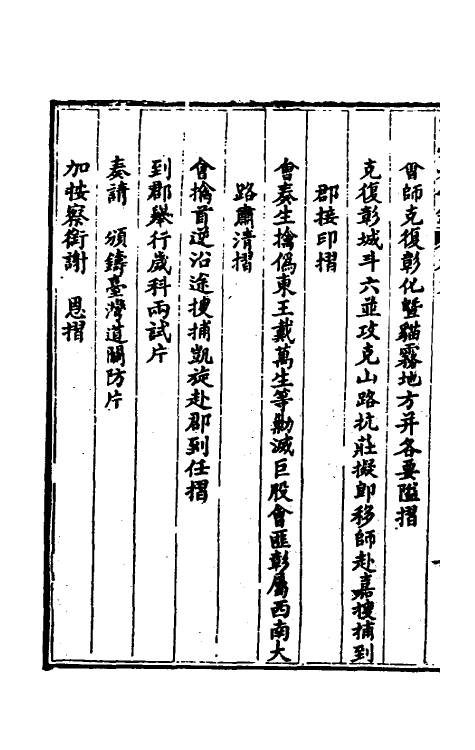 會師克復彰化暨貓霧地方并各要隘摺
克復彰城斗六並攻克山路抗莊擬即移師赴嘉搜捕到
郡接印摺
會奏生擒偽東王戴萬生等勦滅巨股會匪彰屬西南大
路肅清摺
會擒首逆沿途搜捕凱旋赴郡到任摺
到郡舉行歲科兩試片
奏請 頒鑄臺灣道關防片
加按察銜謝 恩摺